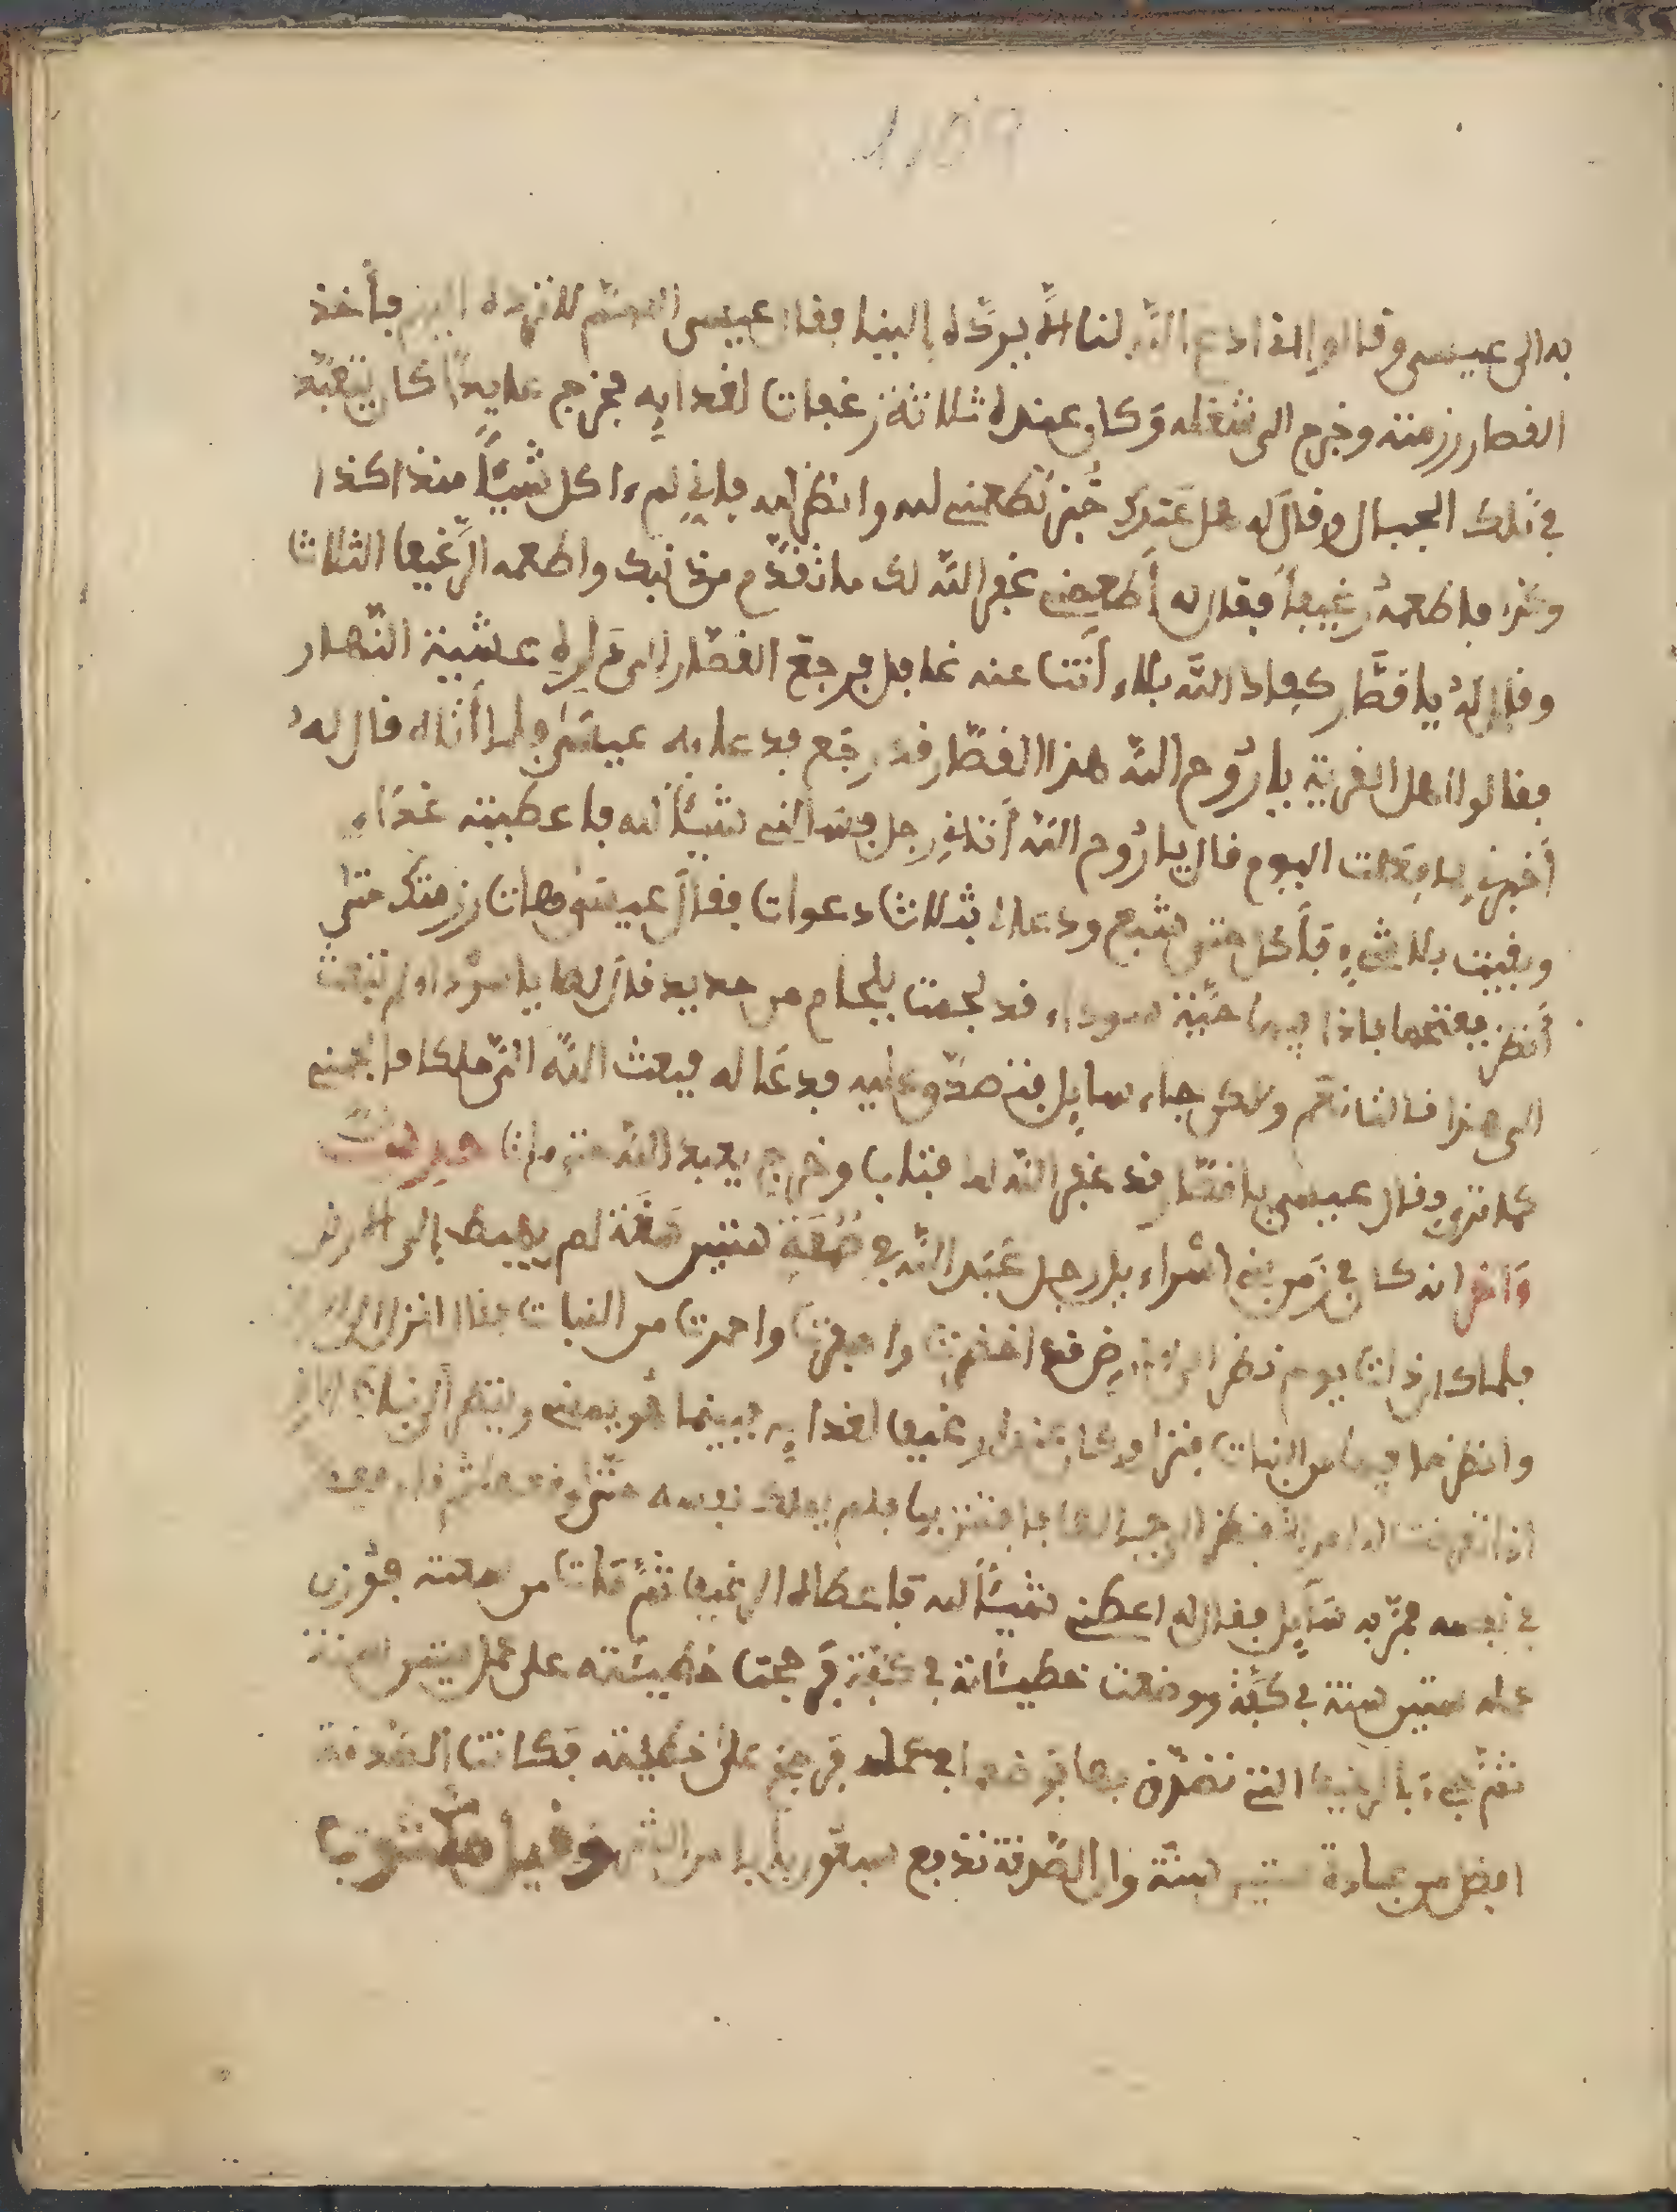 به الى عيسى وقالوا له ادع الله لنا لا يرده الينا فقال عيسى اللهم لا ترده الينا فأخذ
القصار رزمته وخرج الى شغله وكان عنده ثلاثة رغفات لغدايه فخرج عابد كان يتعبد
في تلك الجبال وقال له هل عندك خبز تطعمني لله وانظر له فاني لم ءاكل شيئا منذ كذا
وكذا فاطعمه رغيفا فقال له أطعمني غفر الله لك ما تقدم من ذنبك واطعمه الرغيف الثالث
وقال له يا قصار كفاك الله بلاء أنت عنه غافل فرجع القصار الى داره عشية النهار
فقالوا اهل القرية يا روح الله هذا القصار قد رجع فدعا به عيسى فلما أتاه قال له
أخبرني ما فعلت اليوم قال يا روح الله أتاني رجل فسالني شيئا لله فاعطيته غداء
وبقيت بلا شيء فأكل حتى شبع ودعا لي بثلاث دعوات فقال عيسى هات رزمتك حتى
أنظر ففتحها فاذا فيها حية سوداء قد لجمت بلجام من حديد قال لها يا سوداء لم تبعث
الى هذا قالت نعم ولكن جاء سايل فتصدق عليه فدعا له فبعث الله الي ملكا فالجمني
كما ترى وقال عيسى يا قصار قد غفر الله لك فتاب وخرج يعبد الله حتى مات حديث
واخر انه كان في زمن بني اسراءيل رجل عبد الله في صومعة ستين سنة لم يهبط الى الارض
فلما كان ذات يوم نظر الى الارض قد اخضرت واصفرت واحمرت من النبات فقال انزل الى الارض
وانظر ما فيها من النبات فنزل وكان عنده رغيف لغدايه فبينما هو يمشي وينظر الى نبات الارض
اذ اتعرضت له امراة فنظر الى جمالها فافتتن بها فلم يملك نفسه حتى وقع عليها ثم
في نفسه فمر به سايل فقال له اعطني شيئا لله فاعطاه الرغيف ثم مات من ساعته فوزن
عمله ستين سنة في كفة ووضعت خطيئته في كفة فرجحت خطيئته على عمل ستين سنة
ثم جيء بالرغيف التي تصدق بها فوضع في عمله فرجح على خطيئته فكانت الصدقة
افضل من عبادة ستين سنة وان الصدقة تدفع سبعون بابا من الشر وقيل